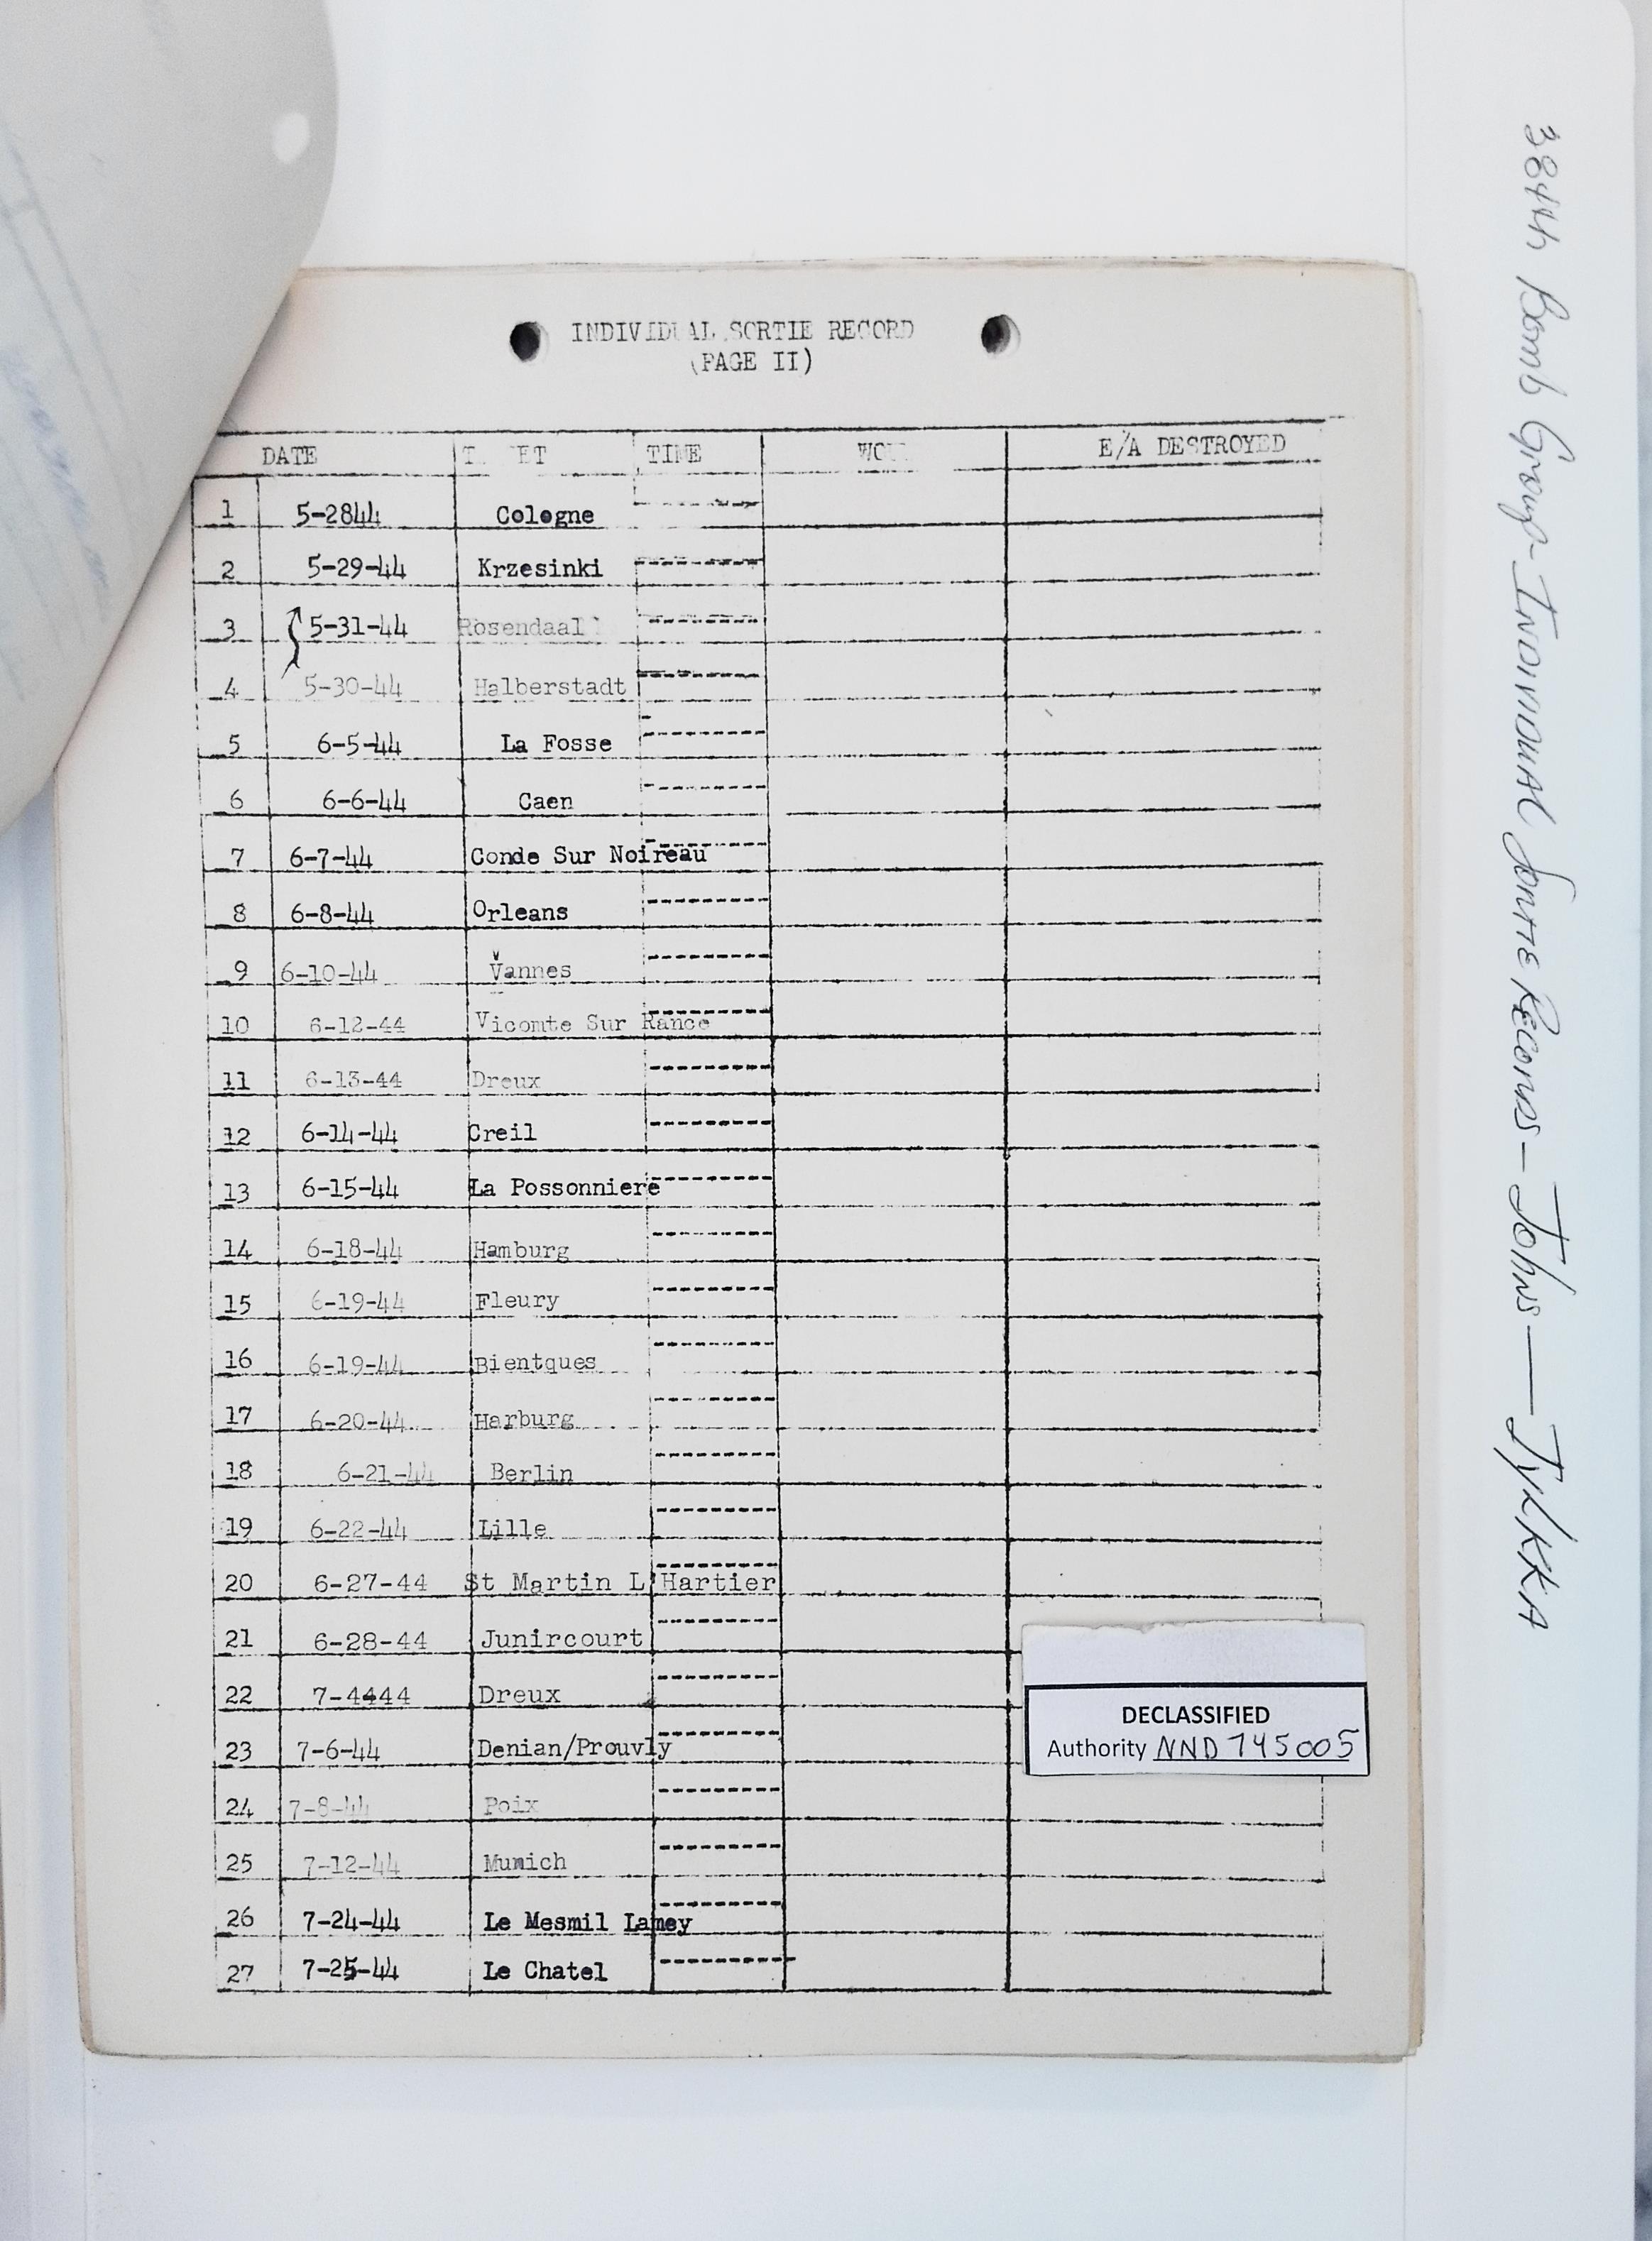 INDIVIDUAL SORTIE RECORD
(PAGE II)
DATE T ET TIME WOU E/A DESTROYED
1 5-2844 Cologne ----------
2 5-29-44 Krzesinki ----------
3 5-31-44 Rosendaal ---------
4 5-30-44 Halberstadt ----------
5 6-5-44 La Fosse ----------
6 6-6-44 Caen ---------
7 6-7-44 Conde Sur Noireau ----------
8 6-8-44 Orleans ----------
9 6-10-44 Vannes ----------
10 6-12-44 Vicomte Sur Rance ----------
11 6-13-44 Dreux ----------
12 6-14-44 Creil ----------
13 6-15-44 La Possonniere ----------
14 6-18-44 Hamburg ----------
15 6-19-44 Fleury ----------
16 6-19-44 Bientques ----------
17 6-20-44 Harburg ----------
18 6-21-44 Berlin ----------
19 6-22-44 Lille ----------
20 6-27-44 St Martin L'Hartier ----------
21 6-28-44 Junircourt ----------
22 7-4444 Dreux ----------
23 7-6-44 Denian/Prouvly ----------
24 7-8-44 Poix ----------
25 7-12-44 Munich ----------
26 7-24-44 Le Mesmil Lamey ----------
27 7-25-44 Le Chatel -----------
DECLASSIFIED
Authority NND 745005
384th Bomb Group - Individual Sortie Records - Johns - Jylkka